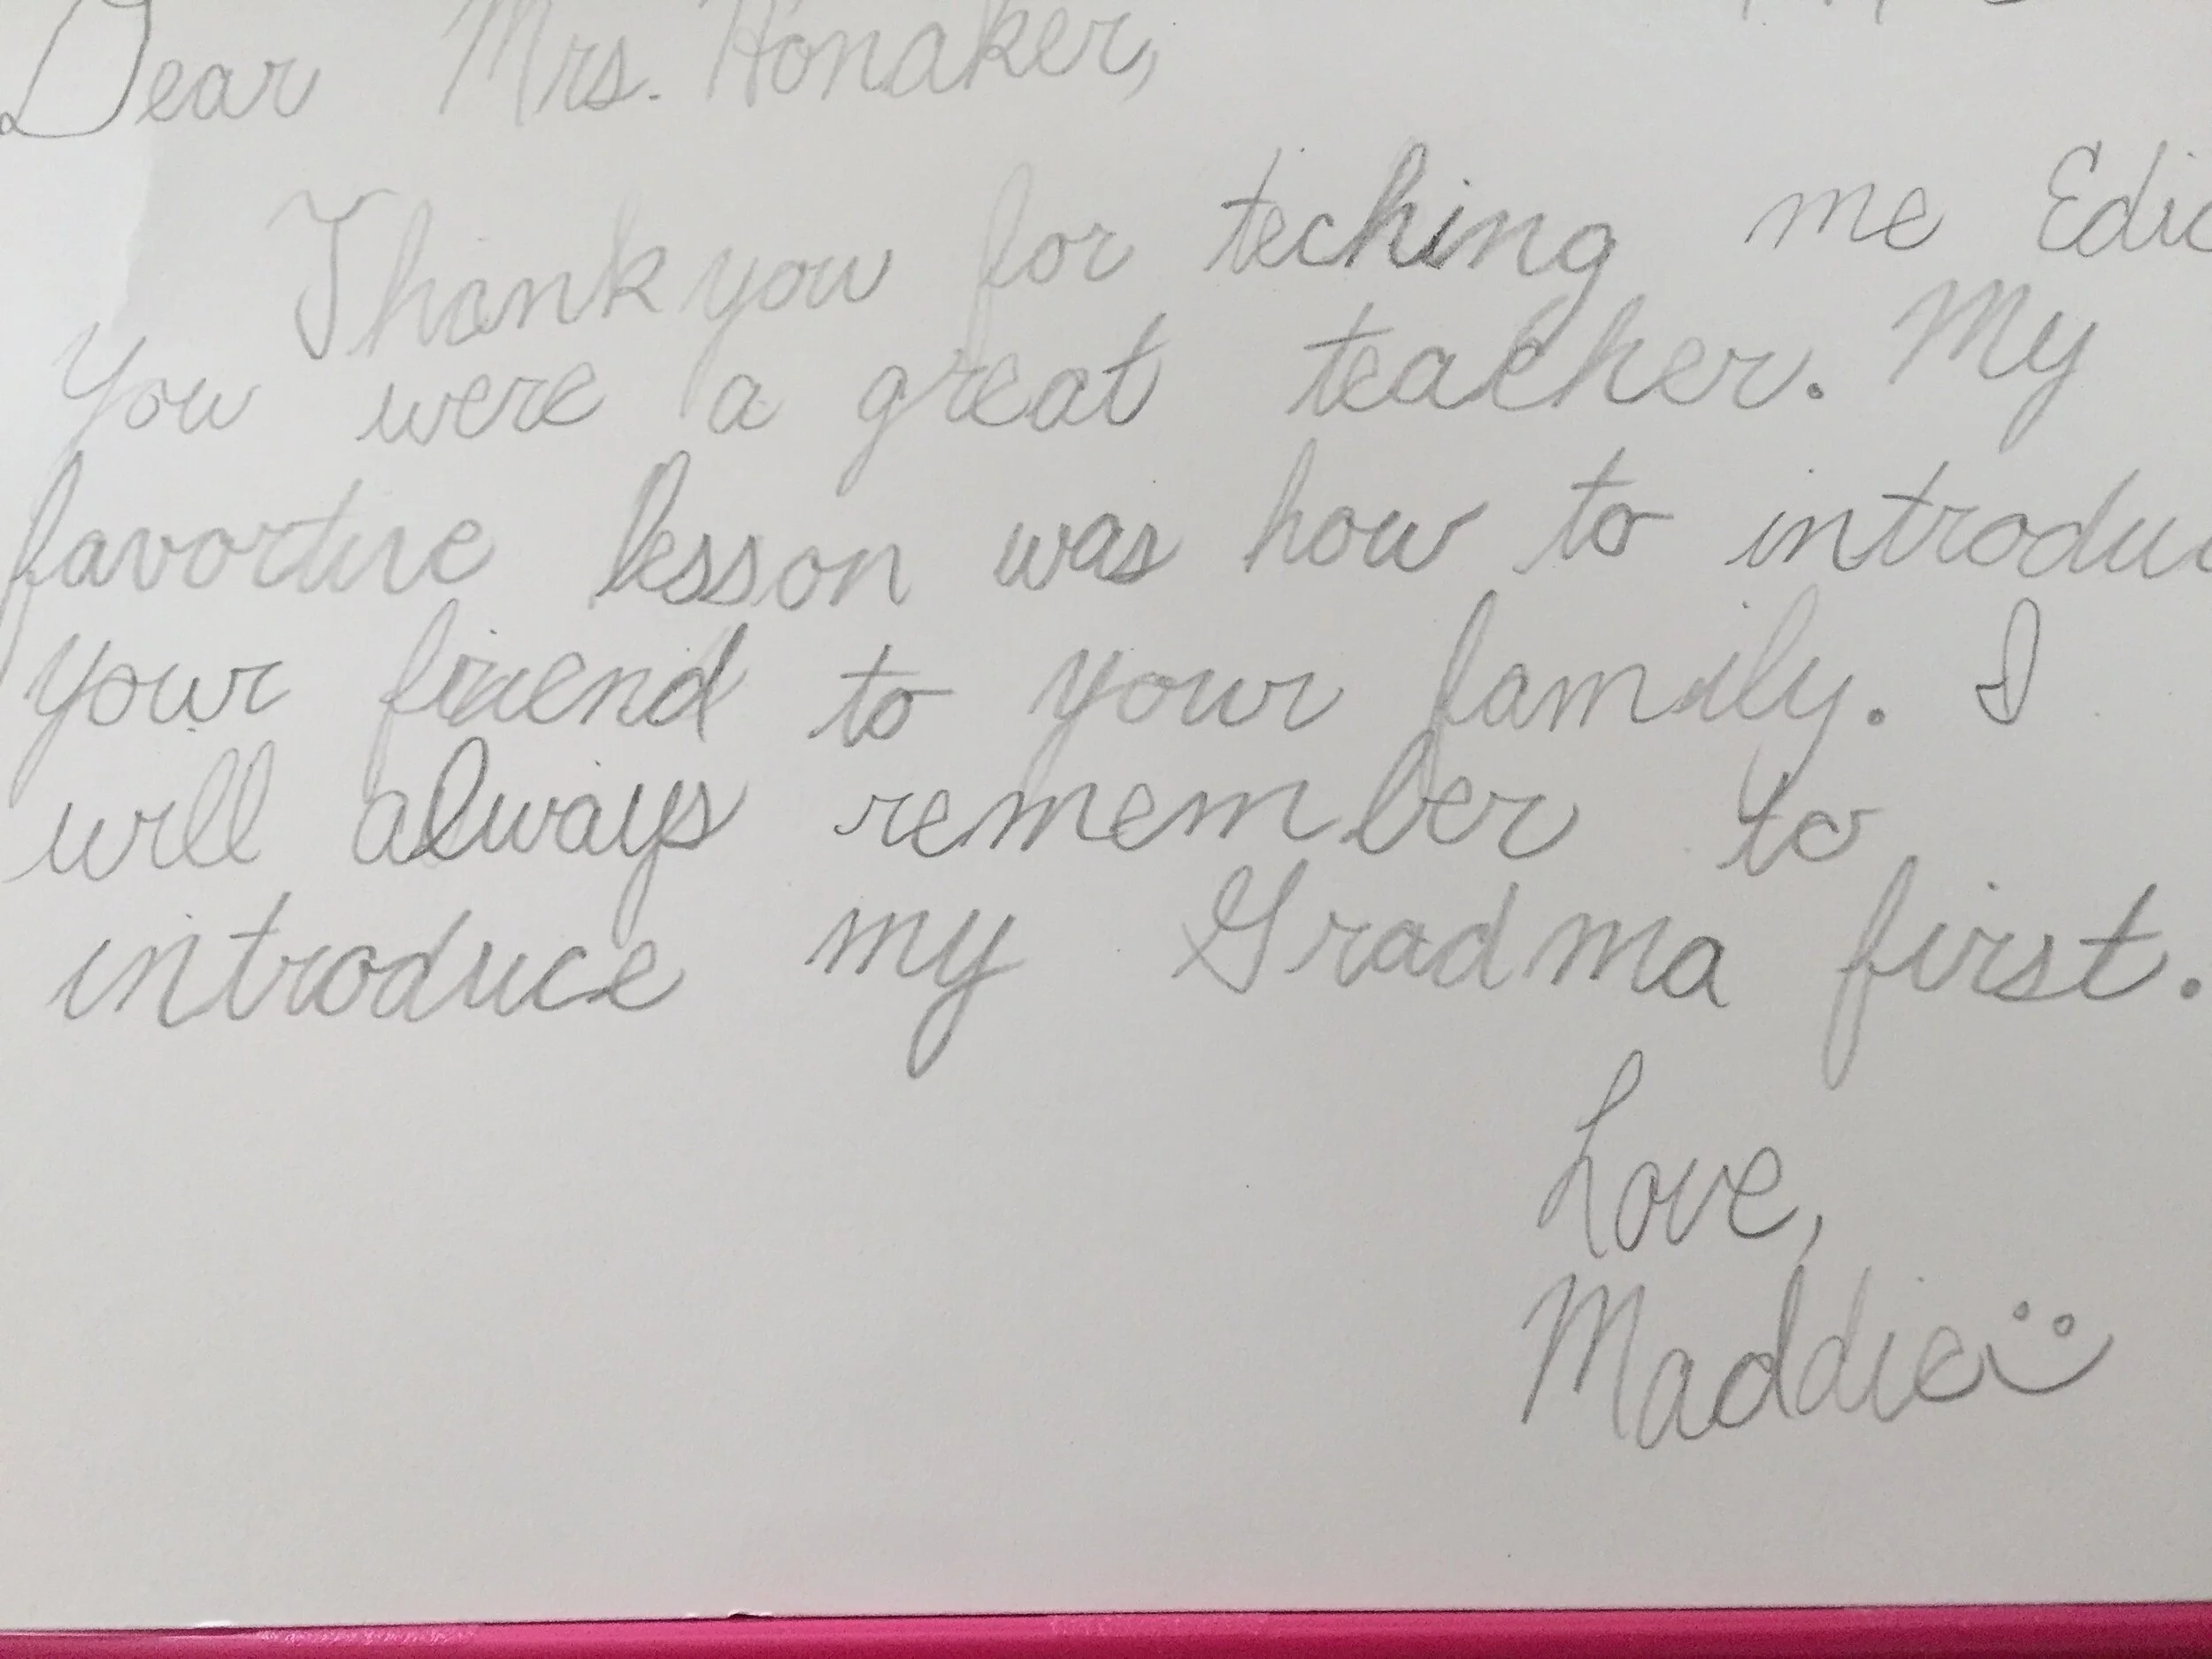 Dear Mrs. Honaker,
Thank you for teching me Edic
You were a great teacher. My
favortue lesson was how to introduc
your friend to your family. I
will always remember to
introduce my Gradma first.
Love,
Maddie